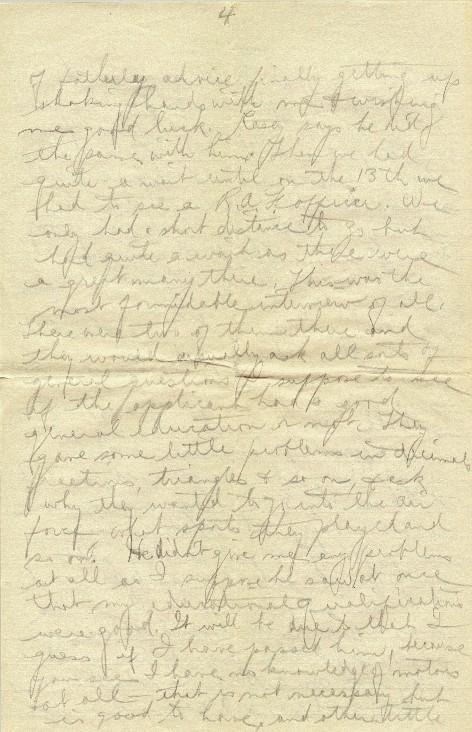 4
of fatherly advice finally getting up
shaking hands with me & wishing
me good luck. Casey says he did
the same with him. Then we had
quite a wait until on the 13th we
had to see a R.A.F. officer. We
only had a short distance to go but
had quite a wait as there were
a great many there. This was the
most formidable interview of all.
There were two of them there and
they would usually ask all sorts of
general questions I suppose to see
if the applicant had a good
general education or not. They
gave some little problems in decimals
fractions, triangles & so on, & ask
why they wanted to go into the air
force what sports they played and
so on. He didn't give me any problems
at all as I suppose he saw at once
that my educational qualifications
were good. It will be due to that I
guess if I have passed him, because
you see I have no knowledge of motors
at all — that is not necessary but
is good to have, and other little